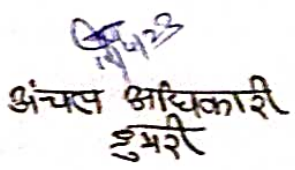 14/4/23
अंचल अधिकारी
डुमरी